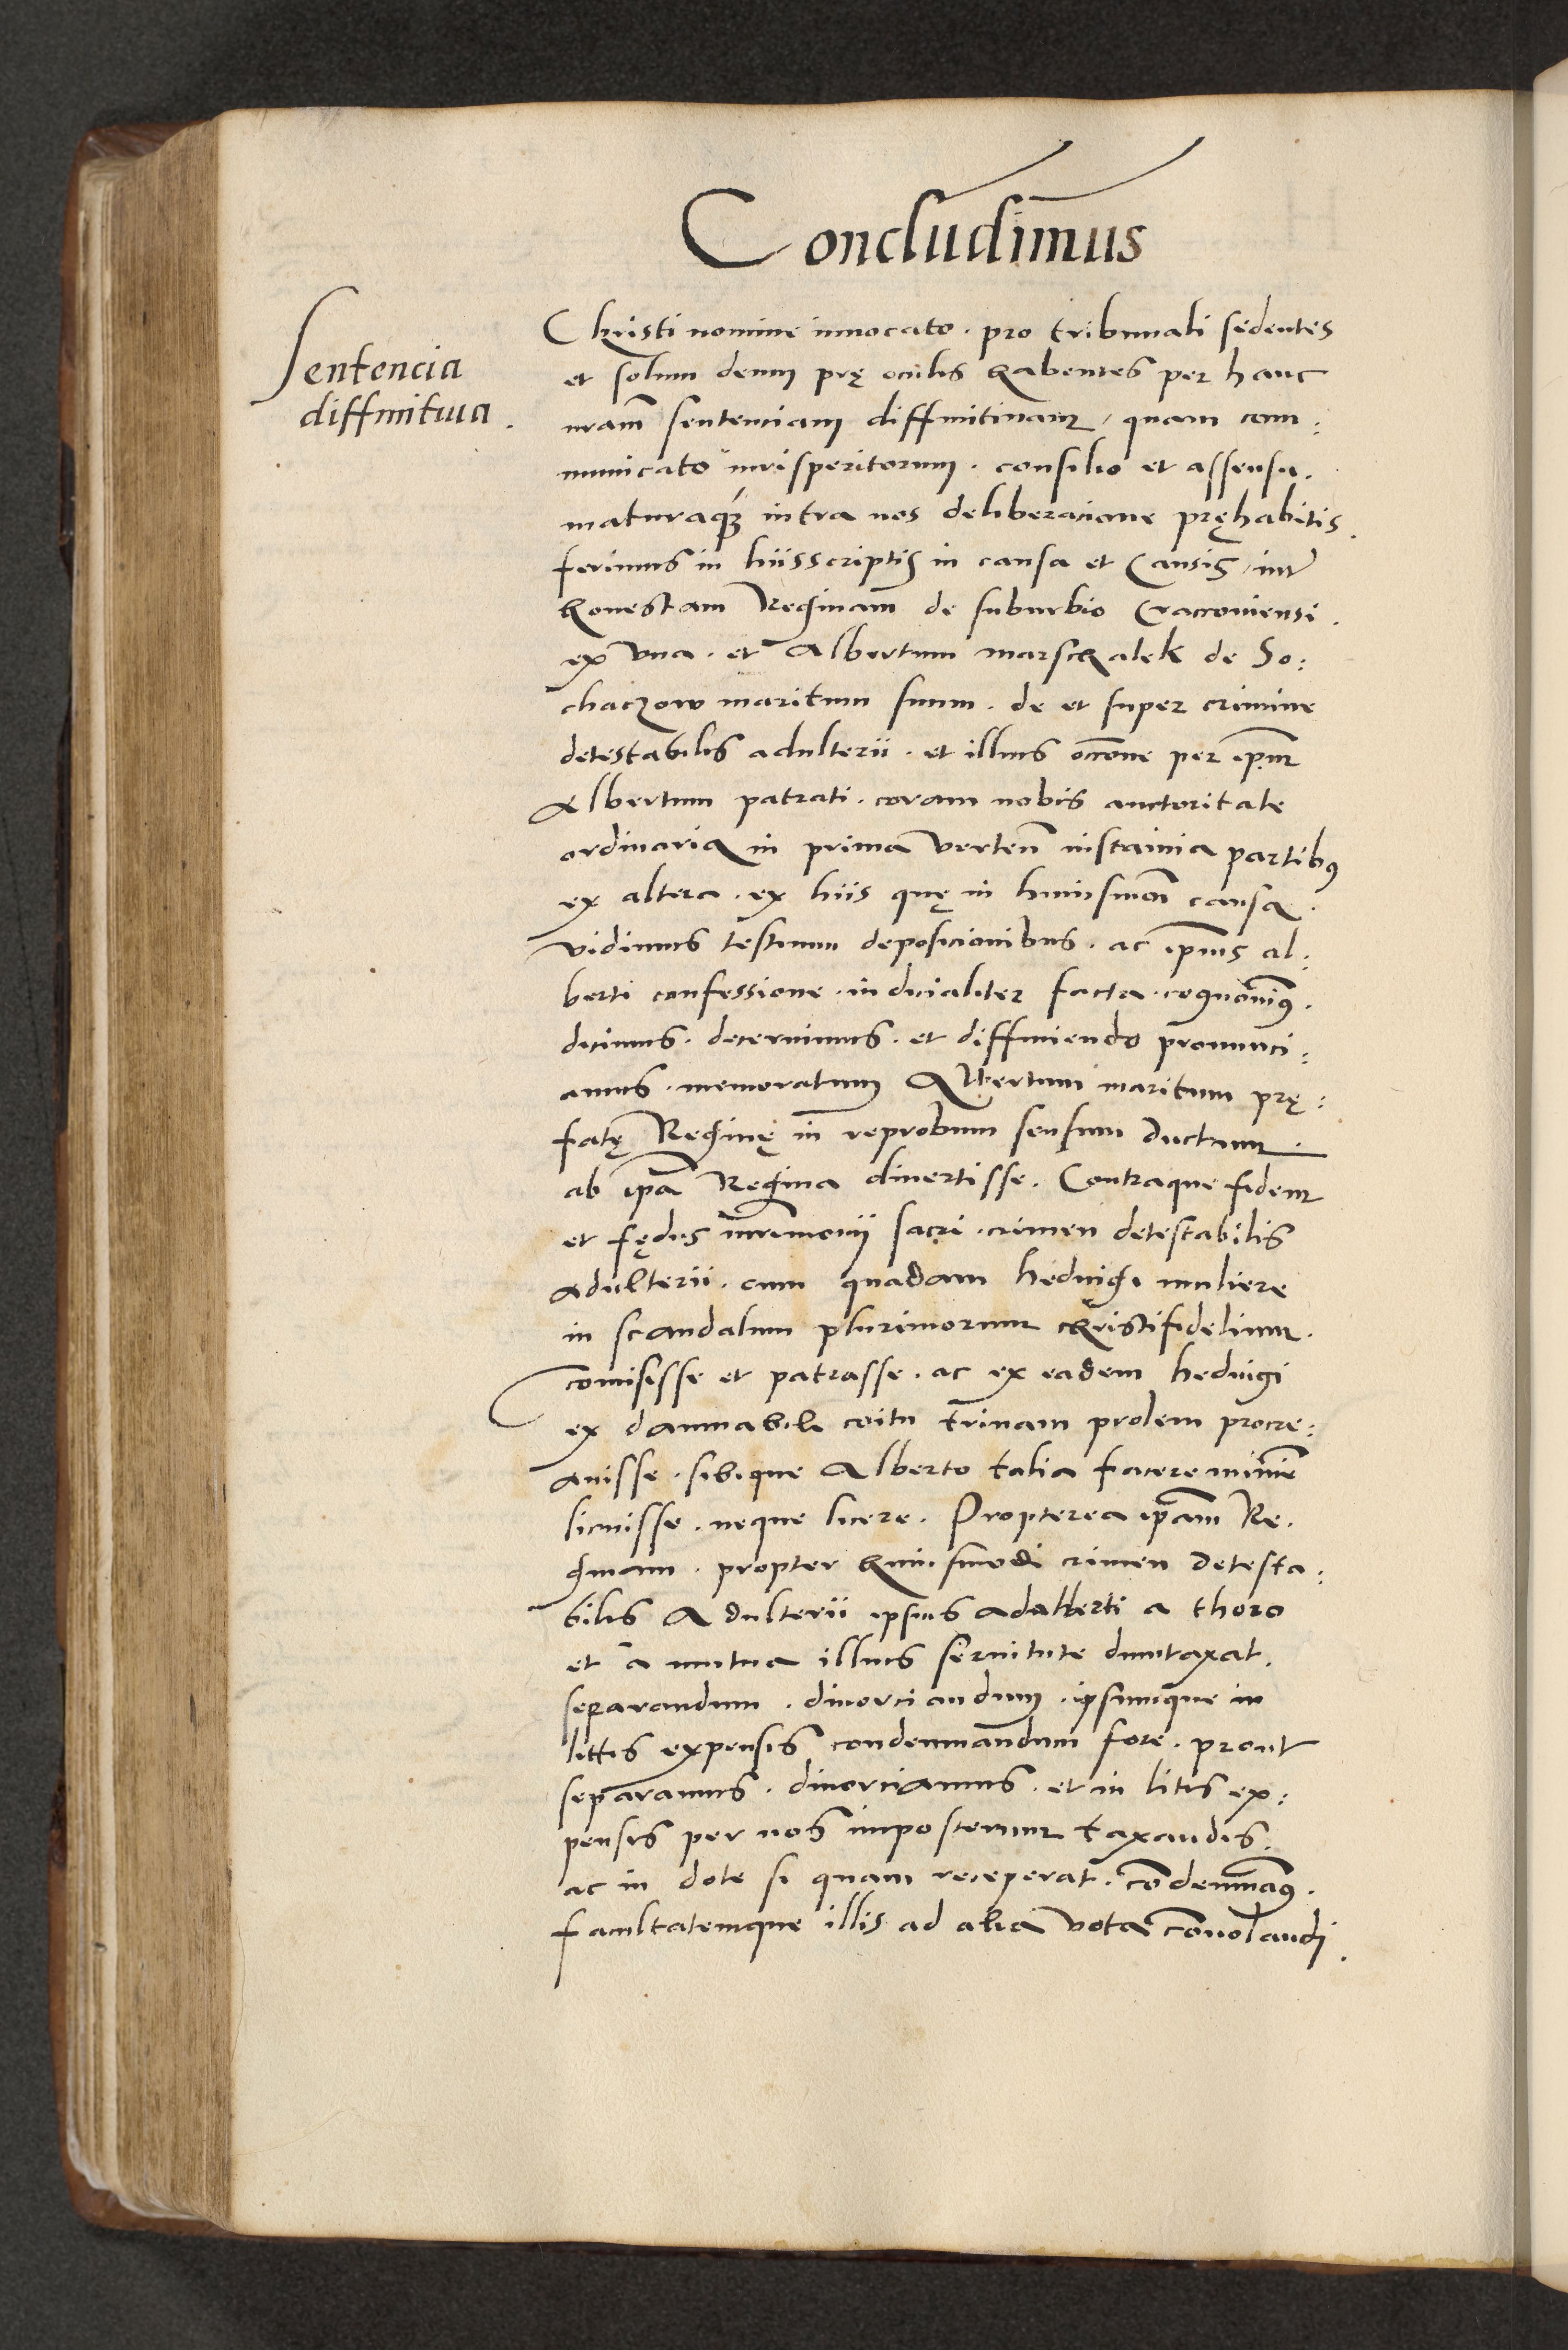 Concludimus
Sentencia
diffinitiua.
Christi nomine inuocato. pro tribunali sedentes
et solum deum prę oculis habentes per hanc
nram̄ sentenciam diffinitiuam, quam com:
municato iurisperitorum. consilio et assensu.
maturaq́ꝫ intra nos deliberacione pręhabitis.
ferimus in hiisscriptis in causa et Causis, int̄
honestam Reginam̄ de suburbio Cracouiensi.
ex vna. et Albertum marschalek de So:
chaczow maritum suum. de et super crimine
detestabilis adulterii. et illius occ̄one per ip̄um
Albertum patrati. coram nobis auctoritate
ordinaria in prima verteñ instancia partibꝰ
ex altera. ex hiis quę in huiusmōi causa.
vidimus testium deposicionibus. ac ip̄ius al:
berti confessione. iudicialiter facta. cognouimꝰ.
dicimus. decernimus. et diffiniendo pronunci:
amus. memoratum Albertum maritum prę:
fatę Reginę in reprobum sensum ductum.
ab ip̄a Regina diuertisse. Contraque fidem
et fędus mr̄imonii sacri. crimen detestabilis
adulterii. cum quadam heduigi muliere
in scandalum plurimorum christifidelium.
com̄isisse et patrasse. ac ex eadem heduigi
ex damnabili coitu trinam prolem procre:
auisse. sibique Alberto talia facere minīe
licuisse. neque licere. Propterea ip̄am Re.
ginam. propter huiusmodi crimen detesta:
bilis Adulterii ipsius Adalberti a thoro
et a mutua illius seruitute dumtaxat.
separandum. diuorciandum. ipsumque in
littis expensis condemnandum fore. prout
separamus. diuorciamus. et in litis ex:
pensis per nos imposterum taxandis.
ac in dote si quam receperat. cōdemnam̄ꝰ.
facultatemque illis ad alia vota conuolandi.